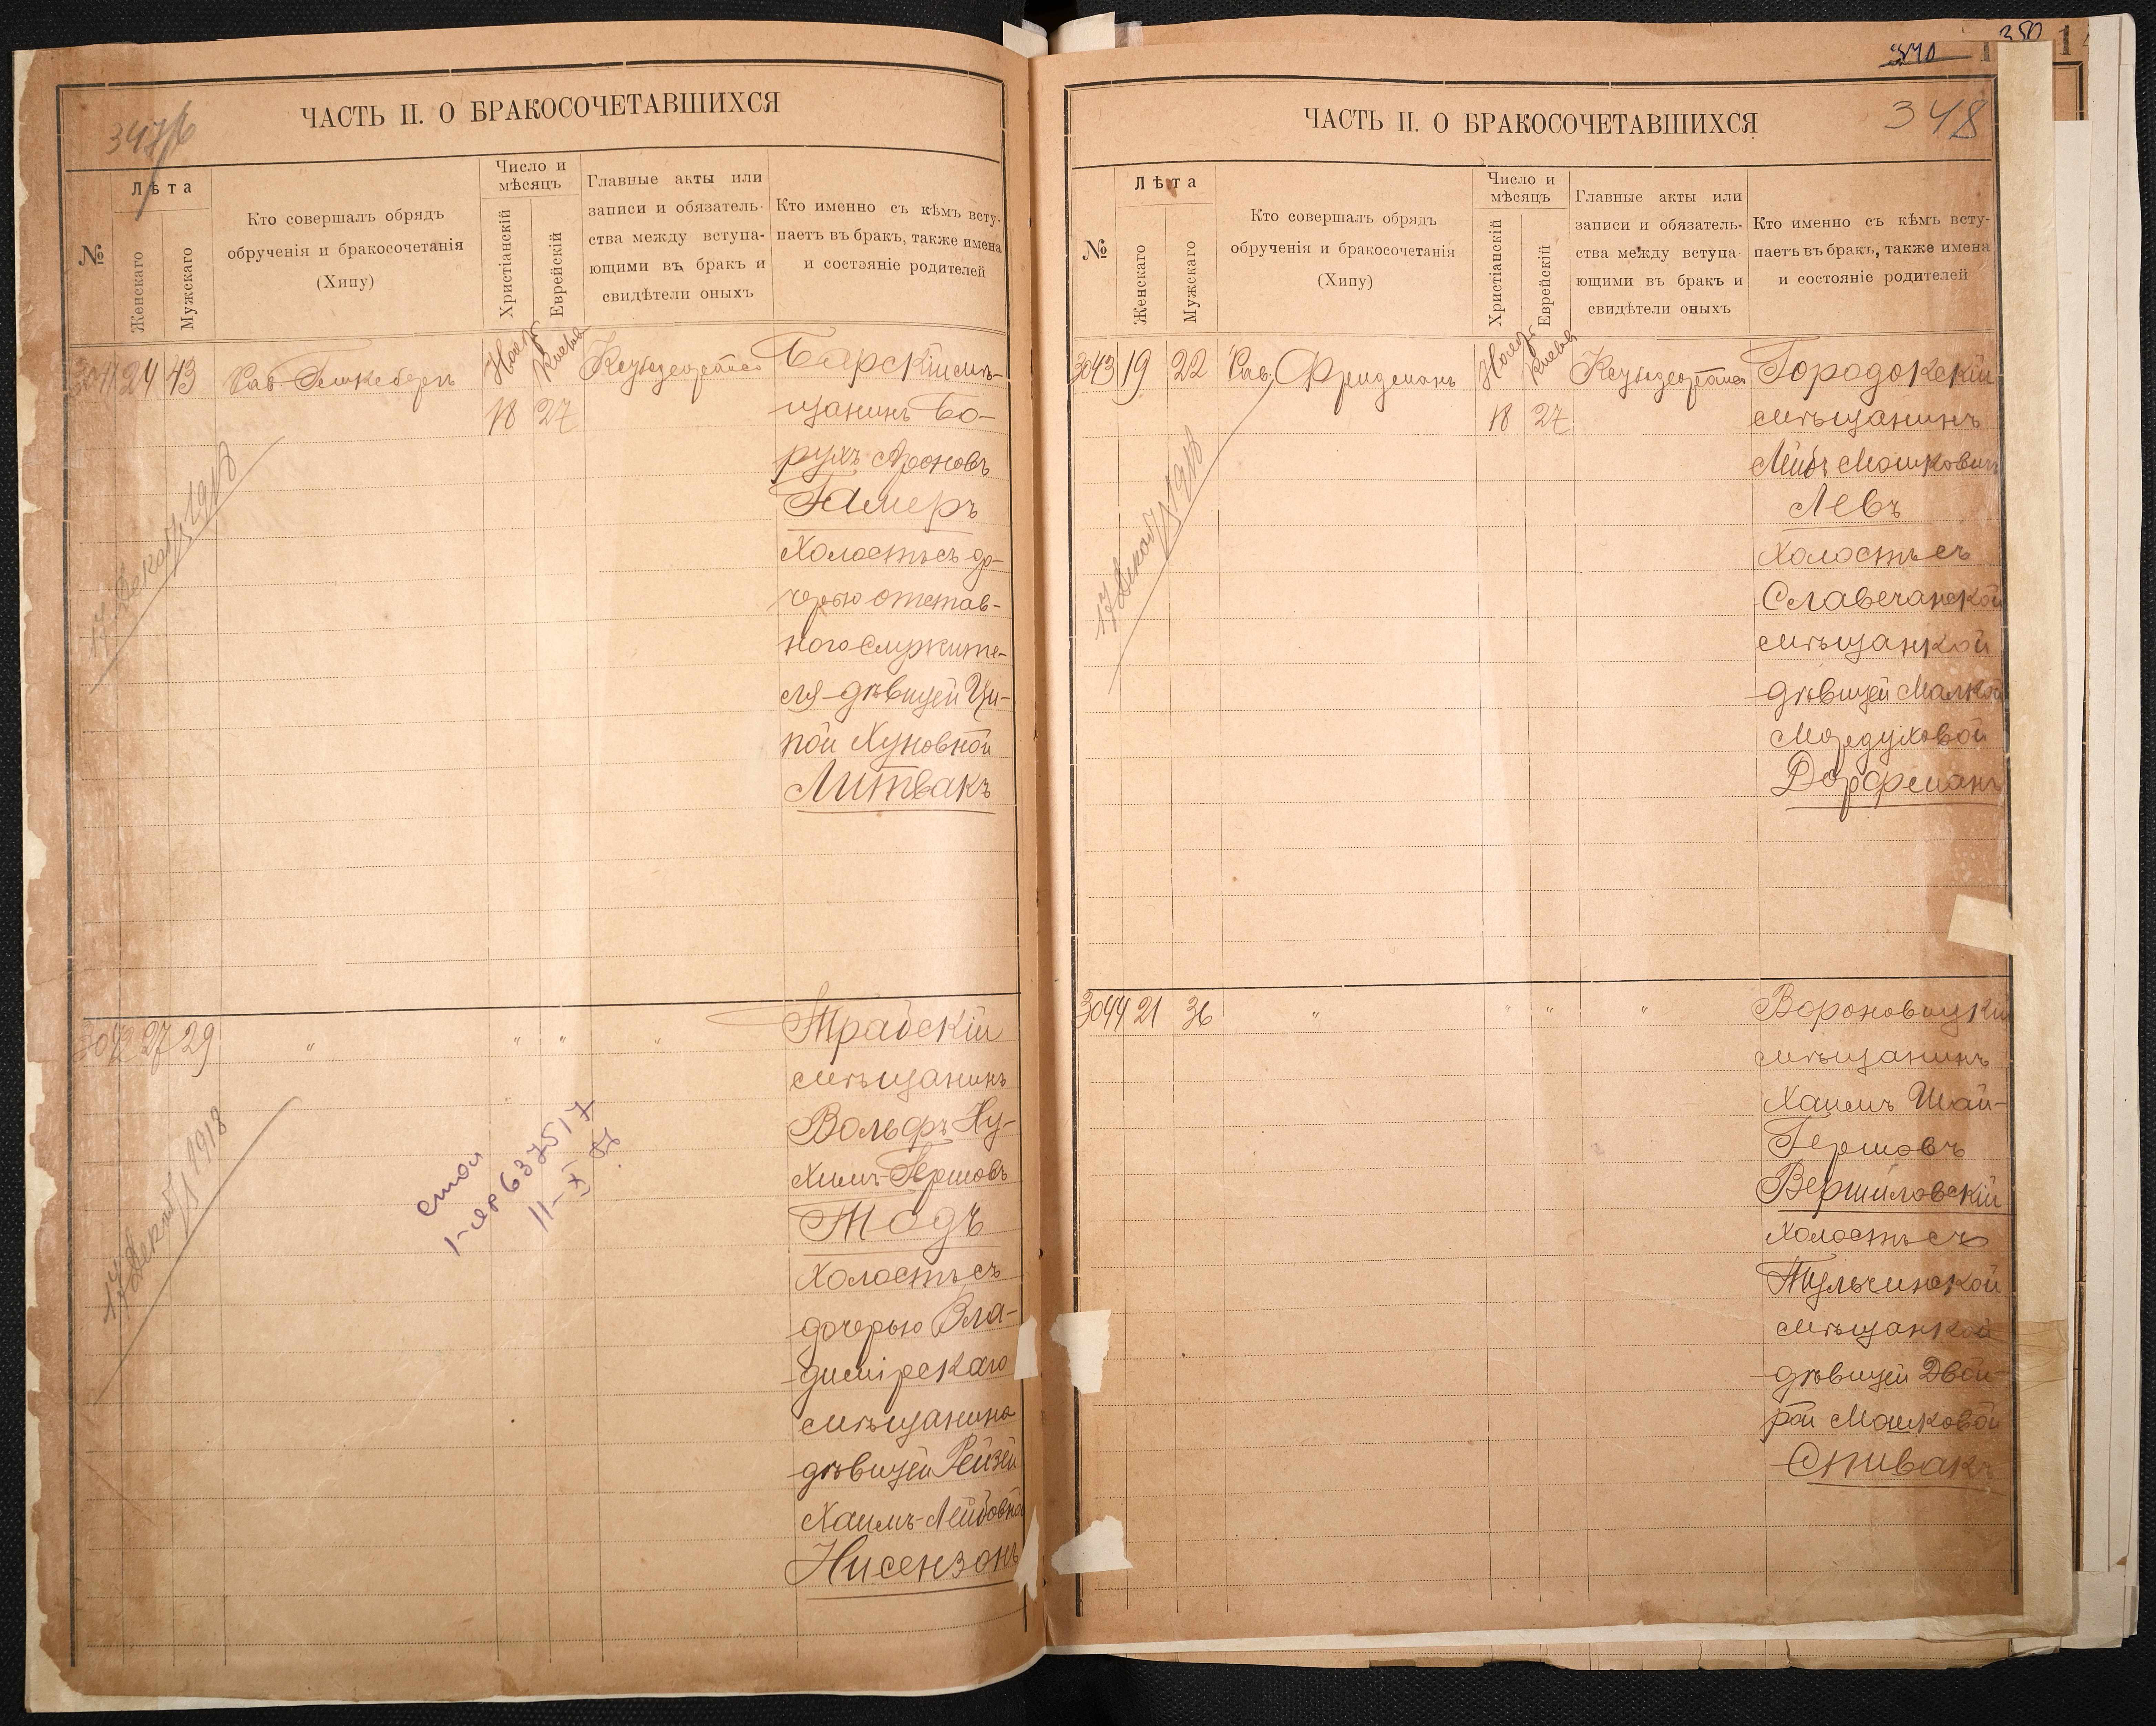 347/б
ЧАСТЬ II. О БРАКОСОЧЕТАВШИХСЯ
№
Лѣта
Женскаго
Мужскаго
Кто совершалъ обрядъ
обрученія и бракосочетанія
(Хипу)
Число и
мѣсяцъ
Христіанскій
Еврейскій
Главные акты или
записи и обязатель-
ства между вступа-
ющими въ бракъ и
свидѣтели оныхъ
Кто именно съ кѣмъ всту-
паетъ въ бракъ, также имена
и состояніе родителей
3041 24 43
Рав.
Нояб
18 27
Барскій мѣ-
щанинъ Бо-
рухъ Ароновъ
Гамеръ
Холостъ съ до-
черью отстав-
ного служите-
ля дѣвицей Ци-
пой Хуновной
Литвакъ
17 Декаб 1918
3042 27 29 " " " "
Трабскій
мѣщанинъ
Вольфъ Ну-
химъ Гершовъ
Тодъ
Холостъ съ
дочерью Вла-
димірскаго
мѣщанина
дѣвицей Рейзей
Хаимъ-Лейбовной
Нисензонъ
17 Декаб 1918
637517
350
340
ЧАСТЬ II. О БРАКОСОЧЕТАВШИХСЯ
348
№
Лѣта
Женскаго
Мужскаго
Кто совершалъ обрядъ
обрученія и бракосочетанія
(Хипу)
Число и
мѣсяцъ
Христіанскій
Еврейскій
Главные акты или
записи и обязатель-
ства между вступа-
ющими въ бракъ и
свидѣтели оныхъ
Кто именно съ кѣмъ всту-
паетъ въ бракъ, также имена
и состояніе родителей
3043 19 22
Рав. Фридманъ
Нояб
18 27
Городокскій
мѣщанинъ
Лейбъ Мошковичъ
Левъ
Холостъ съ
Славечанской
мѣщанкой
дѣвицей Малкой
Мордуховой
Дорфманъ
17 Декаб 1918
3044 21 36 " " " "
Вороновицкій
мѣщанинъ
Хаимъ Шаи-
Гершовъ
Вершиловскій
Холостъ съ
Тульчинской
мѣщанкой
дѣвицей Двой-
рой Мошковой
Спивакъ